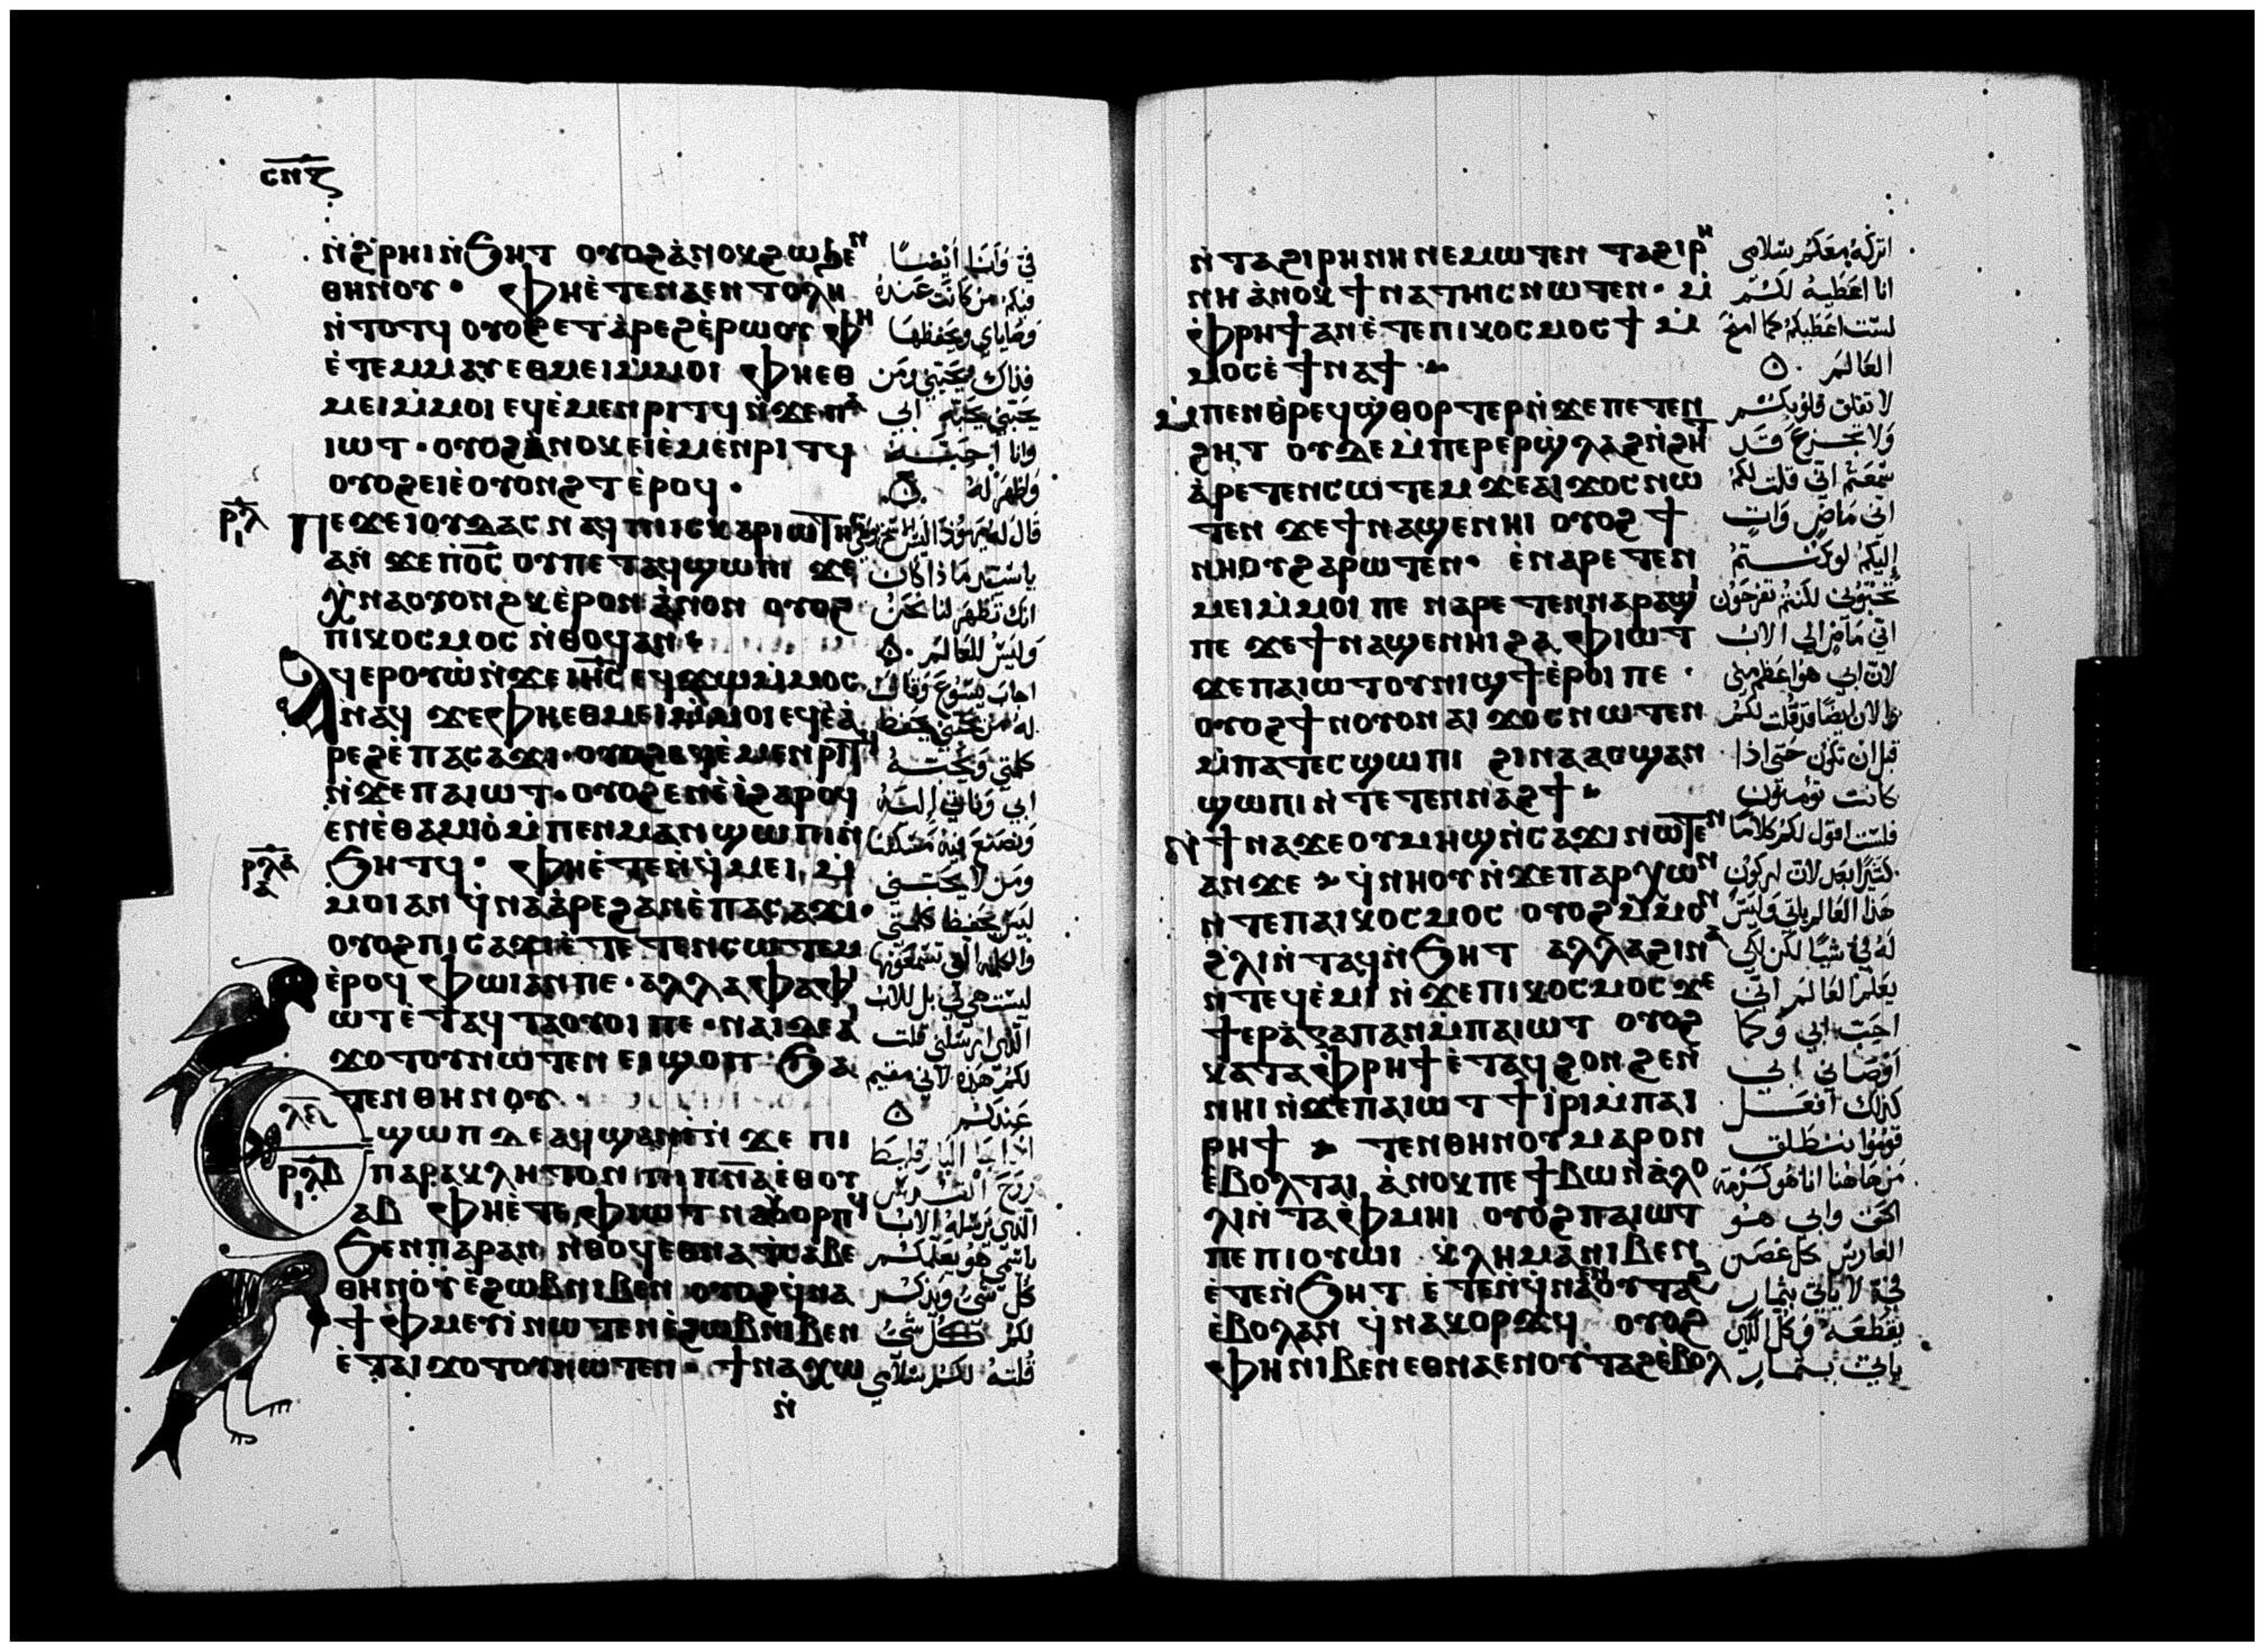 ⲥⲡⲋ
ⲛ̀ϩ̀ⲣⲏⲓ ⲛ̀ϧⲏⲧ ⲟⲩⲟϩ ⲁ̀ⲛⲟⲕ ϩⲱ ϧⲉⲛ
ⲑⲏⲛⲟⲩ · ⲫⲏⲉ̀ⲧⲉⲛⲁⲉⲛⲧⲟⲗⲏ
ⲛ̀ⲧⲟⲧϥ ⲟⲩⲟϩ ⲉⲧⲁ̀ⲣⲉϩ ⲉ̀ⲣⲱⲟⲩ ⲫⲏ
ⲉ̀ⲧⲉⲙⲙⲁⲩ ⲉⲑⲙⲉⲓ ⲙ̀ⲙⲟⲓ ⲫⲏⲉⲑ
ⲙⲉⲓ ⲙ̀ⲙⲟⲓ ⲉϥⲉ̀ⲙⲉⲛⲣⲓⲧϥ ⲛ̀ϫⲉⲡⲁ
ⲓⲱⲧ · ⲟⲩⲟϩ ⲁ̀ⲛⲟⲕ ⲉⲓⲉ̀ⲙⲉⲛⲣⲓⲧϥ
ⲟⲩⲟϩ ⲉⲓⲉ̀ⲟⲩⲟⲛϩⲧ ⲉ̀ⲣⲟϥ ·
ⲣⲗ
ⲓ
ⲡⲉϫⲉ ⲓⲟⲩⲇⲁⲥ ⲛⲁϥ ⲡⲓⲓⲥⲕⲁⲣⲓⲱⲧⲏⲥ
ⲁⲛ ϫⲉ ⲡⲟ̅ⲥ̅ ⲟⲩ ⲡⲉⲧⲁϥϣⲱⲡⲓ ϫⲉ
ⲭ̀ⲛⲁⲟⲩⲟⲛϩⲕ ⲉ̀ⲣⲟⲛ ⲁ̀ⲛⲟⲛ ⲟⲩⲟϩ
ⲡⲓⲕⲟⲥⲙⲟⲥ ⲛ̀ⲑⲟϥ ⲁⲛ ·
ⲁϥⲉⲣⲟⲩⲱ̀ ⲛ̀ϫⲉ ⲓⲏ̅ⲥ̅ ⲉϥϫⲱ ⲙ̀ⲙⲟⲥ
ⲛⲁϥ ϫⲉ ⲫⲏⲉⲑⲙⲉⲓ ⲙ̀ⲙⲟⲓ ⲉϥⲉ̀ⲁ̀
ⲣⲉϩ ⲉ̀ⲡⲁⲥⲁϫⲓ · ⲟⲩⲟϩ ⲉϥⲉ̀ⲙⲉⲛⲣⲓⲧϥ
ⲛ̀ϫⲉⲡⲁⲓⲱⲧ · ⲟⲩⲟϩ ⲉⲛⲉ̀ⲓ̀ ϩⲁⲣⲟϥ
ⲉⲛⲉ̀ⲑⲁⲙⲓⲟ̀ ⲙ̀ⲡⲉⲛⲙⲁⲛ̀ϣⲱⲡⲓ ⲛ̀
ⲣⲗⲁ
ϧⲏⲧϥ · ⲫⲏⲉ̀ⲧⲉⲛ̀ϥⲙⲉⲓ ⲙ̀
ⲙⲟⲓ ⲁⲛ ϥ̀ⲛⲁⲁ̀ⲣⲉϩ ⲁⲛ ⲉ̀ⲡⲁⲥⲁϫⲓ ·
ⲟⲩⲟϩ ⲡⲓⲥⲁϫⲓ ⲉ̀ⲧⲉⲧⲉⲛⲥⲱⲧⲉⲙ
ⲉ̀ⲣⲟϥ ⲫⲱⲓ ⲁⲛ ⲡⲉ · ⲁⲗⲗⲁ ⲫⲁⲫⲓ
ⲱⲧ ⲉ̀ⲧⲁϥⲧⲁⲟⲩⲟⲓ ⲡⲉ · ⲛⲁⲓ ⲇⲉ ⲁⲓ
ϫⲟⲧⲟⲩ ⲛⲱⲧⲉⲛ ⲉⲓϣⲟⲡ ϧⲁ
ⲧⲉⲛ ⲑⲏⲛⲟⲩ ·
ϣⲱⲡ ⲇⲉ ⲁϥϣⲁⲛⲓ̀ ⲛ̀ϫⲉ ⲡⲓ
ⲣⲗⲃ
ⲡⲁⲣⲁⲕⲗⲏⲧⲟⲛ ⲡⲓⲡ̅ⲛ̅ⲁ̅ ⲉ̀ⲑⲟⲩ
ⲁⲃ ⲫⲏⲉ̀ⲧⲉ ⲫⲓⲱⲧ ⲛⲁⲟⲩⲟⲣⲡϥ
ϧⲉⲛ ⲡⲁⲣⲁⲛ ⲛ̀ⲑⲟϥ ⲉⲑⲛⲁⲧⲥⲁⲃⲉ
ⲑⲏⲛⲟⲩ ⲉ̀ϩⲱⲃ ⲛⲓⲃⲉⲛ ⲟⲩⲟϩ ϥ̀ⲛⲁ
ϯⲫⲙⲉⲩⲓ̀ ⲛⲱⲧⲉⲛ ⲉ̀ϩⲱⲃ ⲛⲓⲃⲉⲛ
ⲉ̀ⲧⲁⲓϫⲟⲧⲟⲩ ⲛⲱⲧⲉⲛ · ϯⲛⲁⲭⲱ
ⲛ̀
في وانا ايضًا
فيكم من كانت عنده
وصاياي ويحفظها
فذاك يحبني ومن
يحبني يحبه ابي
وانا احبه
واظهر له
قال له يهوذا ليس الاسخريوطي
ياسيد ماذا كان
انك تظهر لنا نحن
وليس للعالم
اجاب يسوع وقال
له من يحبني يحفظ
كلمتي ويحبه
ابي وناتي اليه
ونصنع فيه مسكنا
ومن لا يحبني
ليس يحفظ كلمتي
والكلمه التي تسمعونها
ليست هي لي بل للاب
الذي ارسلني قلت
لكم هذه لاني مقيم
عندكم
اذا جا البارقليط
روح القدس
الذي يرسله الاب
باسمي هو يعلمكم
كل شي ويذكركم
لكم كل شي
قلته لكم سلامي
ⲛ̀ⲧⲁϩⲓⲣⲏⲛⲏ ⲛⲉⲙⲱⲧⲉⲛ ⲧⲁϩⲓⲣⲏ
ⲛⲏ ⲁ̀ⲛⲟⲕ ϯⲛⲁⲧⲏⲓⲥ ⲛⲱⲧⲉⲛ · ⲙ̀
ⲫⲣⲏϯ ⲁⲛ ⲉ̀ⲧⲉ ⲡⲓⲕⲟⲥⲙⲟⲥ ϯ ⲙ̀
ⲙⲟⲥ ⲉ̀ϯⲛⲁϯ
ⲙ̀ⲡⲉⲛⲑ̀ⲣⲉϥϣ̀ⲑⲟⲣⲧⲉⲣ ⲛ̀ϫⲉ ⲡⲉⲧⲉⲛ
ϩⲏⲧ ⲟⲩⲇⲉ ⲙ̀ⲡⲉⲣⲉⲣϣ̀ⲗⲁϩ ⲛ̀ϩⲏⲧ
ⲁ̀ⲣⲉⲧⲉⲛⲥⲱⲧⲉⲙ ϫⲉ ⲁⲓϫⲟⲥ ⲛⲱ
ⲧⲉⲛ ϫⲉ ϯⲛⲁϣⲉⲛⲏⲓ ⲟⲩⲟϩ ϯ
ⲛⲏⲟⲩ ϩⲁⲣⲱⲧⲉⲛ · ⲉ̀ⲛⲁⲣⲉⲧⲉⲛ
ⲙⲉⲓ ⲙ̀ⲙⲟⲓ ⲡⲉ ⲛⲁⲣⲉⲧⲉⲛⲛⲁⲣⲁϣⲓ
ⲡⲉ ϫⲉ ϯⲛⲁϣⲉⲛⲏⲓ ϩⲁ ⲫⲓⲱⲧ
ϫⲉ ⲡⲁⲓⲱⲧ ⲟⲩⲛⲓϣϯ ⲉ̀ⲣⲟⲓ ⲡⲉ ·
ⲟⲩⲟϩ ϯⲛⲟⲩ ⲟⲛ ⲁⲓϫⲟⲥ ⲛⲱⲧⲉⲛ
ⲙ̀ⲡⲁⲧⲉⲥϣⲱⲡⲓ ϩⲓⲛⲁ ⲁⲥϣⲁⲛ
ϣⲱⲡⲓ ⲛ̀ⲧⲉⲧⲉⲛⲛⲁϩϯ
ⲛ̀ϯⲛⲁϫⲉ ⲟⲩⲙⲏϣ ⲛ̀ⲥⲁϫⲓ ⲛⲱⲧⲉⲛ
ⲁⲛ ϫⲉ ϥ̀ⲛⲏⲟⲩ ⲛ̀ϫⲉ ⲡⲁⲣⲭⲱⲛ
ⲛ̀ⲧⲉ ⲡⲁⲓⲕⲟⲥⲙⲟⲥ ⲟⲩⲟϩ ⲙ̀ⲙⲟⲛ
ϩ̀ⲗⲓ ⲛ̀ⲧⲁϥ ⲛ̀ϧⲏⲧ ⲁⲗⲗⲁ ϩⲓⲛⲁ
ⲛ̀ⲧⲉϥⲉ̀ⲙⲓ ⲛ̀ϫⲉ ⲡⲓⲕⲟⲥⲙⲟⲥ ϫⲉ
ϯⲉⲣⲁ̀ⲅⲁⲡⲁⲛ ⲙ̀ⲡⲁⲓⲱⲧ ⲟⲩⲟϩ
ⲕⲁⲧⲁ ⲫ̀ⲣⲏϯ ⲉ̀ⲧⲁϥϩⲟⲛϩⲉⲛ
ⲛⲏⲓ ⲛ̀ϫⲉ ⲡⲁⲓⲱⲧ ϯⲓ̀ⲣⲓ ⲙ̀ⲡⲁⲓ
ⲣⲏϯ ⲧⲉⲛ ⲑⲏⲛⲟⲩ ⲙⲁⲣⲟⲛ
ⲉ̀ⲃⲟⲗ ⲧⲁⲓ ⲁ̀ⲛⲟⲕ ⲡⲉ ϯⲃⲱ ⲛ̀ⲁ̀ⲗⲟ
ⲗⲓ ⲛ̀ⲧⲁⲫ̀ⲙⲏⲓ ⲟⲩⲟϩ ⲡⲁⲓⲱⲧ
ⲡⲉ ⲡⲓⲟⲩⲱⲓ ⲕ̀ⲗⲏⲙⲁ ⲛⲓⲃⲉⲛ
ⲉ̀ⲧⲉⲛ̀ϧⲏⲧ ⲉ̀ⲧⲉⲛ̀ϥⲛⲁⲉⲛⲟⲩⲧⲁϩ
ⲉ̀ⲃⲟⲗ ⲁⲛ ϥ̀ⲛⲁⲕⲟⲣϫϥ ⲟⲩⲟϩ
ⲫⲏ ⲛⲓⲃⲉⲛ ⲉⲑⲛⲁⲉⲛⲟⲩⲧⲁϩ ⲉ̀ⲃⲟⲗ
اتركه معكم سلامي
انا اعطيه لكم
لست اعطيكم كما
العالم
لا تقلق قلوبكم
ولا تجزع قد
سمعتم اني قلت لكم
اني ماضٍ وآتٍ
إليكم لو كنتم
تحبوني لكنتم تفرحون
اني ماضٍ الي الاب
لان ابي هو اعظم مني
والان ايضًا قد قلت لكم
قبل ان تكون حتى اذا
كانت تومنون
فلست اقول لكم كلامًا
كثيرًا بعد لان اركون
هذا العالم ياتي وليس
له في شيا لكن لكي
يعلم العالم انني
احب ابي وكما
اوصاني ابي
كذلك افعل
قوموا ننطلق
من هاهنا انا هو كرمة
الحق وابي هو
الغارس كل غصن
في لا ياتي بثمار
يقطعه وكل الذي
ياتي بثمار